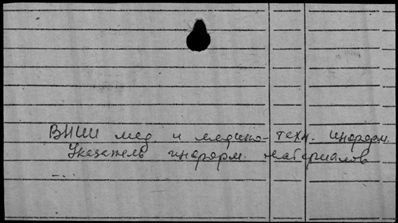 ВНИИ мед. и медико-техн. информ.
Указатель информ. материалов
...